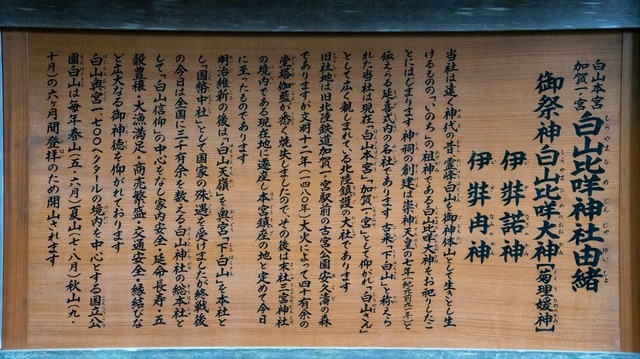 白山本宮
加賀一宮
白山比咩神社由緒
御祭神 白山比咩大神[菊理媛神]
伊弉諾神
伊弉冉神
当社は遠く神代の昔、霊峰白山を御神体山として生きとし生
けるもの「いのち」の祖神である白山比咩大神をお祀りしたこ
とにはじまります 神祠の創建は崇神天皇の七年(紀元前九一)と
伝えらる延喜式内の名社であります 古来「下白山」と称えら
れた当社は現在「白山本宮」「加賀一宮」として仰がれ「白山さん」
として広く親しまれている北陸鎮護の大社であります
旧社地は旧北陸鉄道加賀一宮駅前の古宮公園安久濤の森
でありますが文明十二年(一四八〇年)大火によって四十有余の
堂塔伽藍が悉く焼失しましたので、その後は末社三宮神社
の境内である現在地に遷座し本宮鎮座の地と定めて今日
に至ったものであります
明治維新の後は「白山天嶺」を奥宮「下白山」を本社と
し「国幣中社」として国家の殊遇を受けましたが終戦後
の今日は全国に三千有余を数える白山神社の総本社と
して「白山信仰」の中心をなし家内安全・延命長寿・五
穀豊穣・大漁満足・商売繁盛・交通安全・縁結びな
ど広大なる御神徳を仰がれております
白山奥宮二、七〇〇ヘクタールの境内を中心とする国立公
園白山は毎年春山(五・六月)夏山(七・八月)秋山(九・
十月)の六ヶ月間登拝のため開山されます